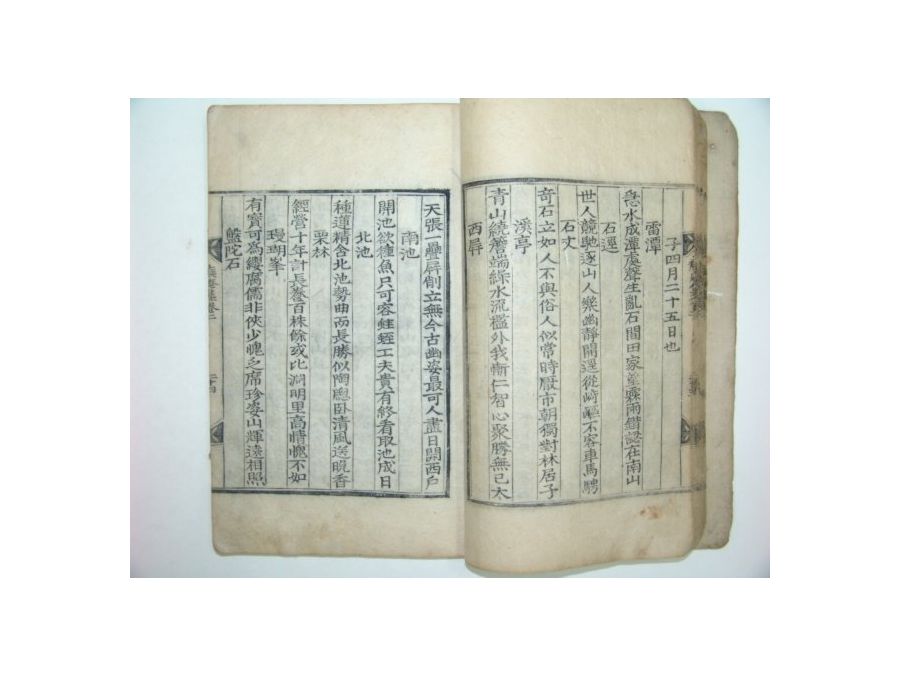 子四月二十五日也
雷潭
急水成潭處聲生亂石間田家望霖雨錯認在南山
石逕
世人競馳逐山人樂幽靜開逕從崎嶇不容車馬騁
石丈
奇石立如人不與俗人似常時厭市朝獨對林居子
溪亭
青山繞簷端綠水流檻外我慚仁智心聚勝無已太
西屛
天張一疊屛削立無今古幽姿最可人盡日開西戶
南池
開池欲種魚只可容蛙蛭工夫貴有終看取池成日
北池
種蓮精舍北池勢曲而長勝似陶牕臥淸風送晩香
栗林
經營十年計長養百株餘或比淵明里高情愧不如
瑾瑚峯
有寶可爲纓腐儒非俠少愧乏席珍姿山輝遠相照
盤陀石